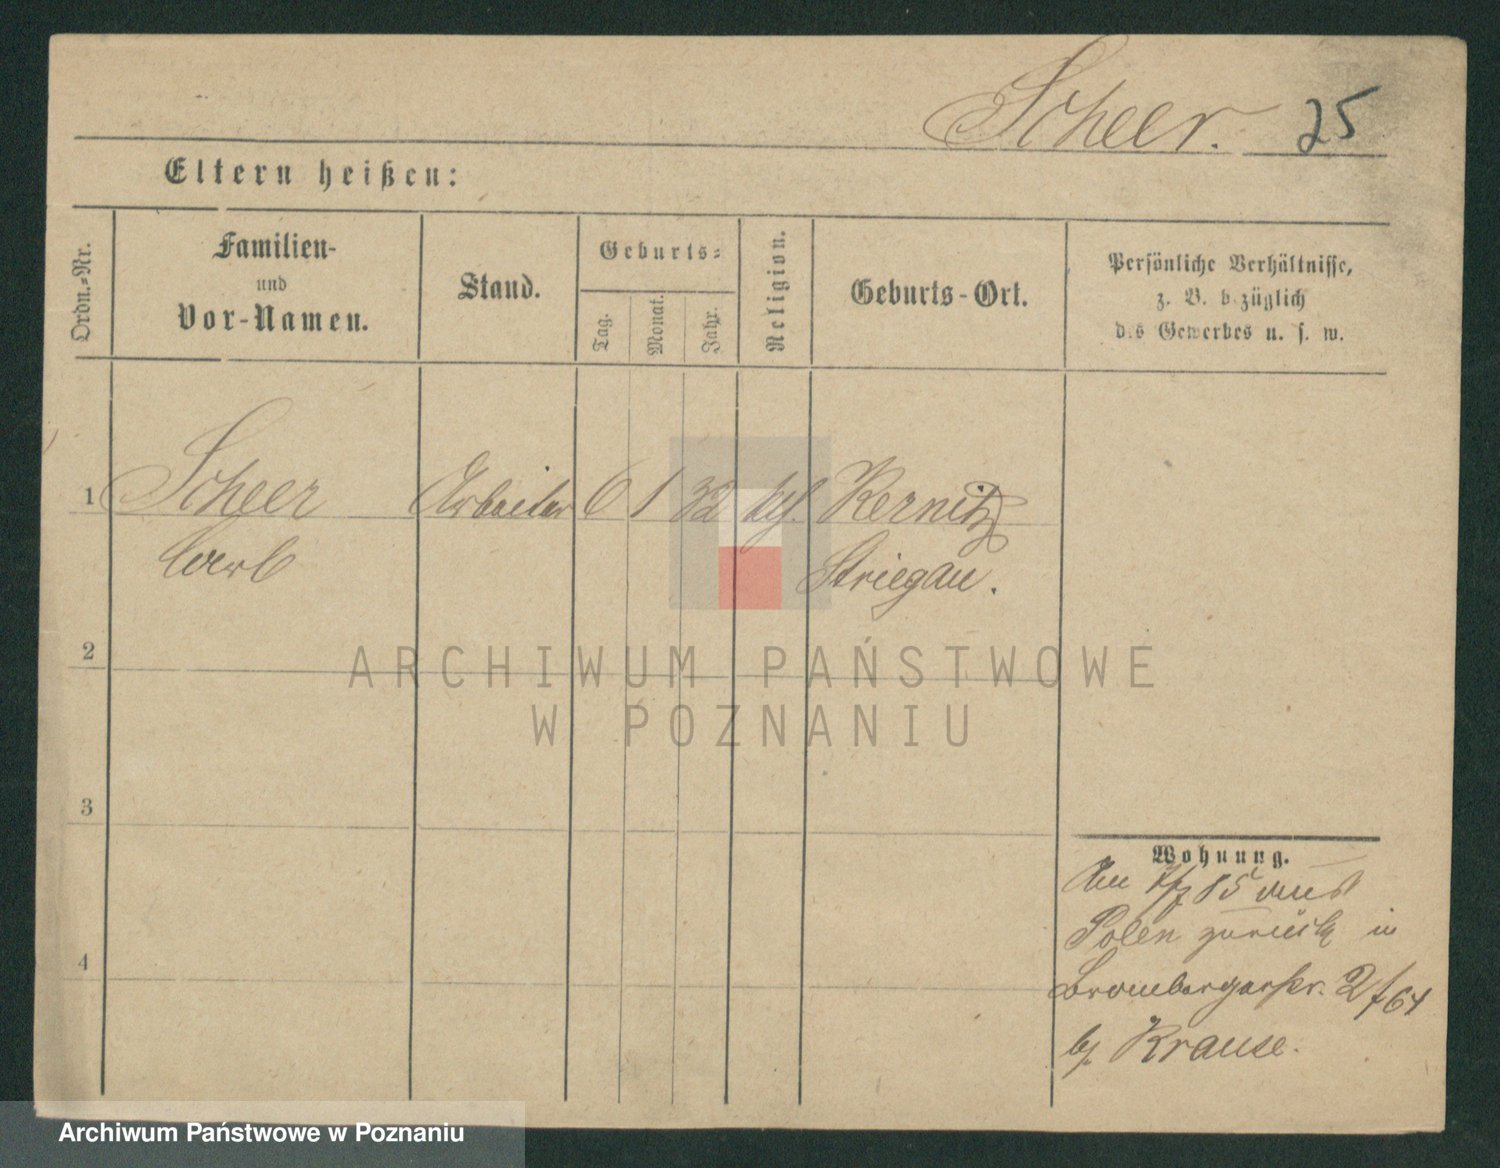 Scheer. 25
Eltern heißen:
Ordn.-Nr.
Familien-
und
Vor-Namen.
Stand.
Geburts-
Tag.
Monat.
Jahr.
Religion.
Geburts-Ort.
Persönliche Verhältnisse,
z. B. bezüglich
des Gewerbes u. s. w.
1 Scheer Arbeiter 6 1 32 Kernitz
Carl Striegau.
2
3
4
Wohnung.
Am 85 aus
Polen zurück in
Brombergerstr. 2/64
b/ Krause.
ARCHIWUM PAŃSTWOWE
W POZNANIU
Archiwum Państwowe w Poznaniu